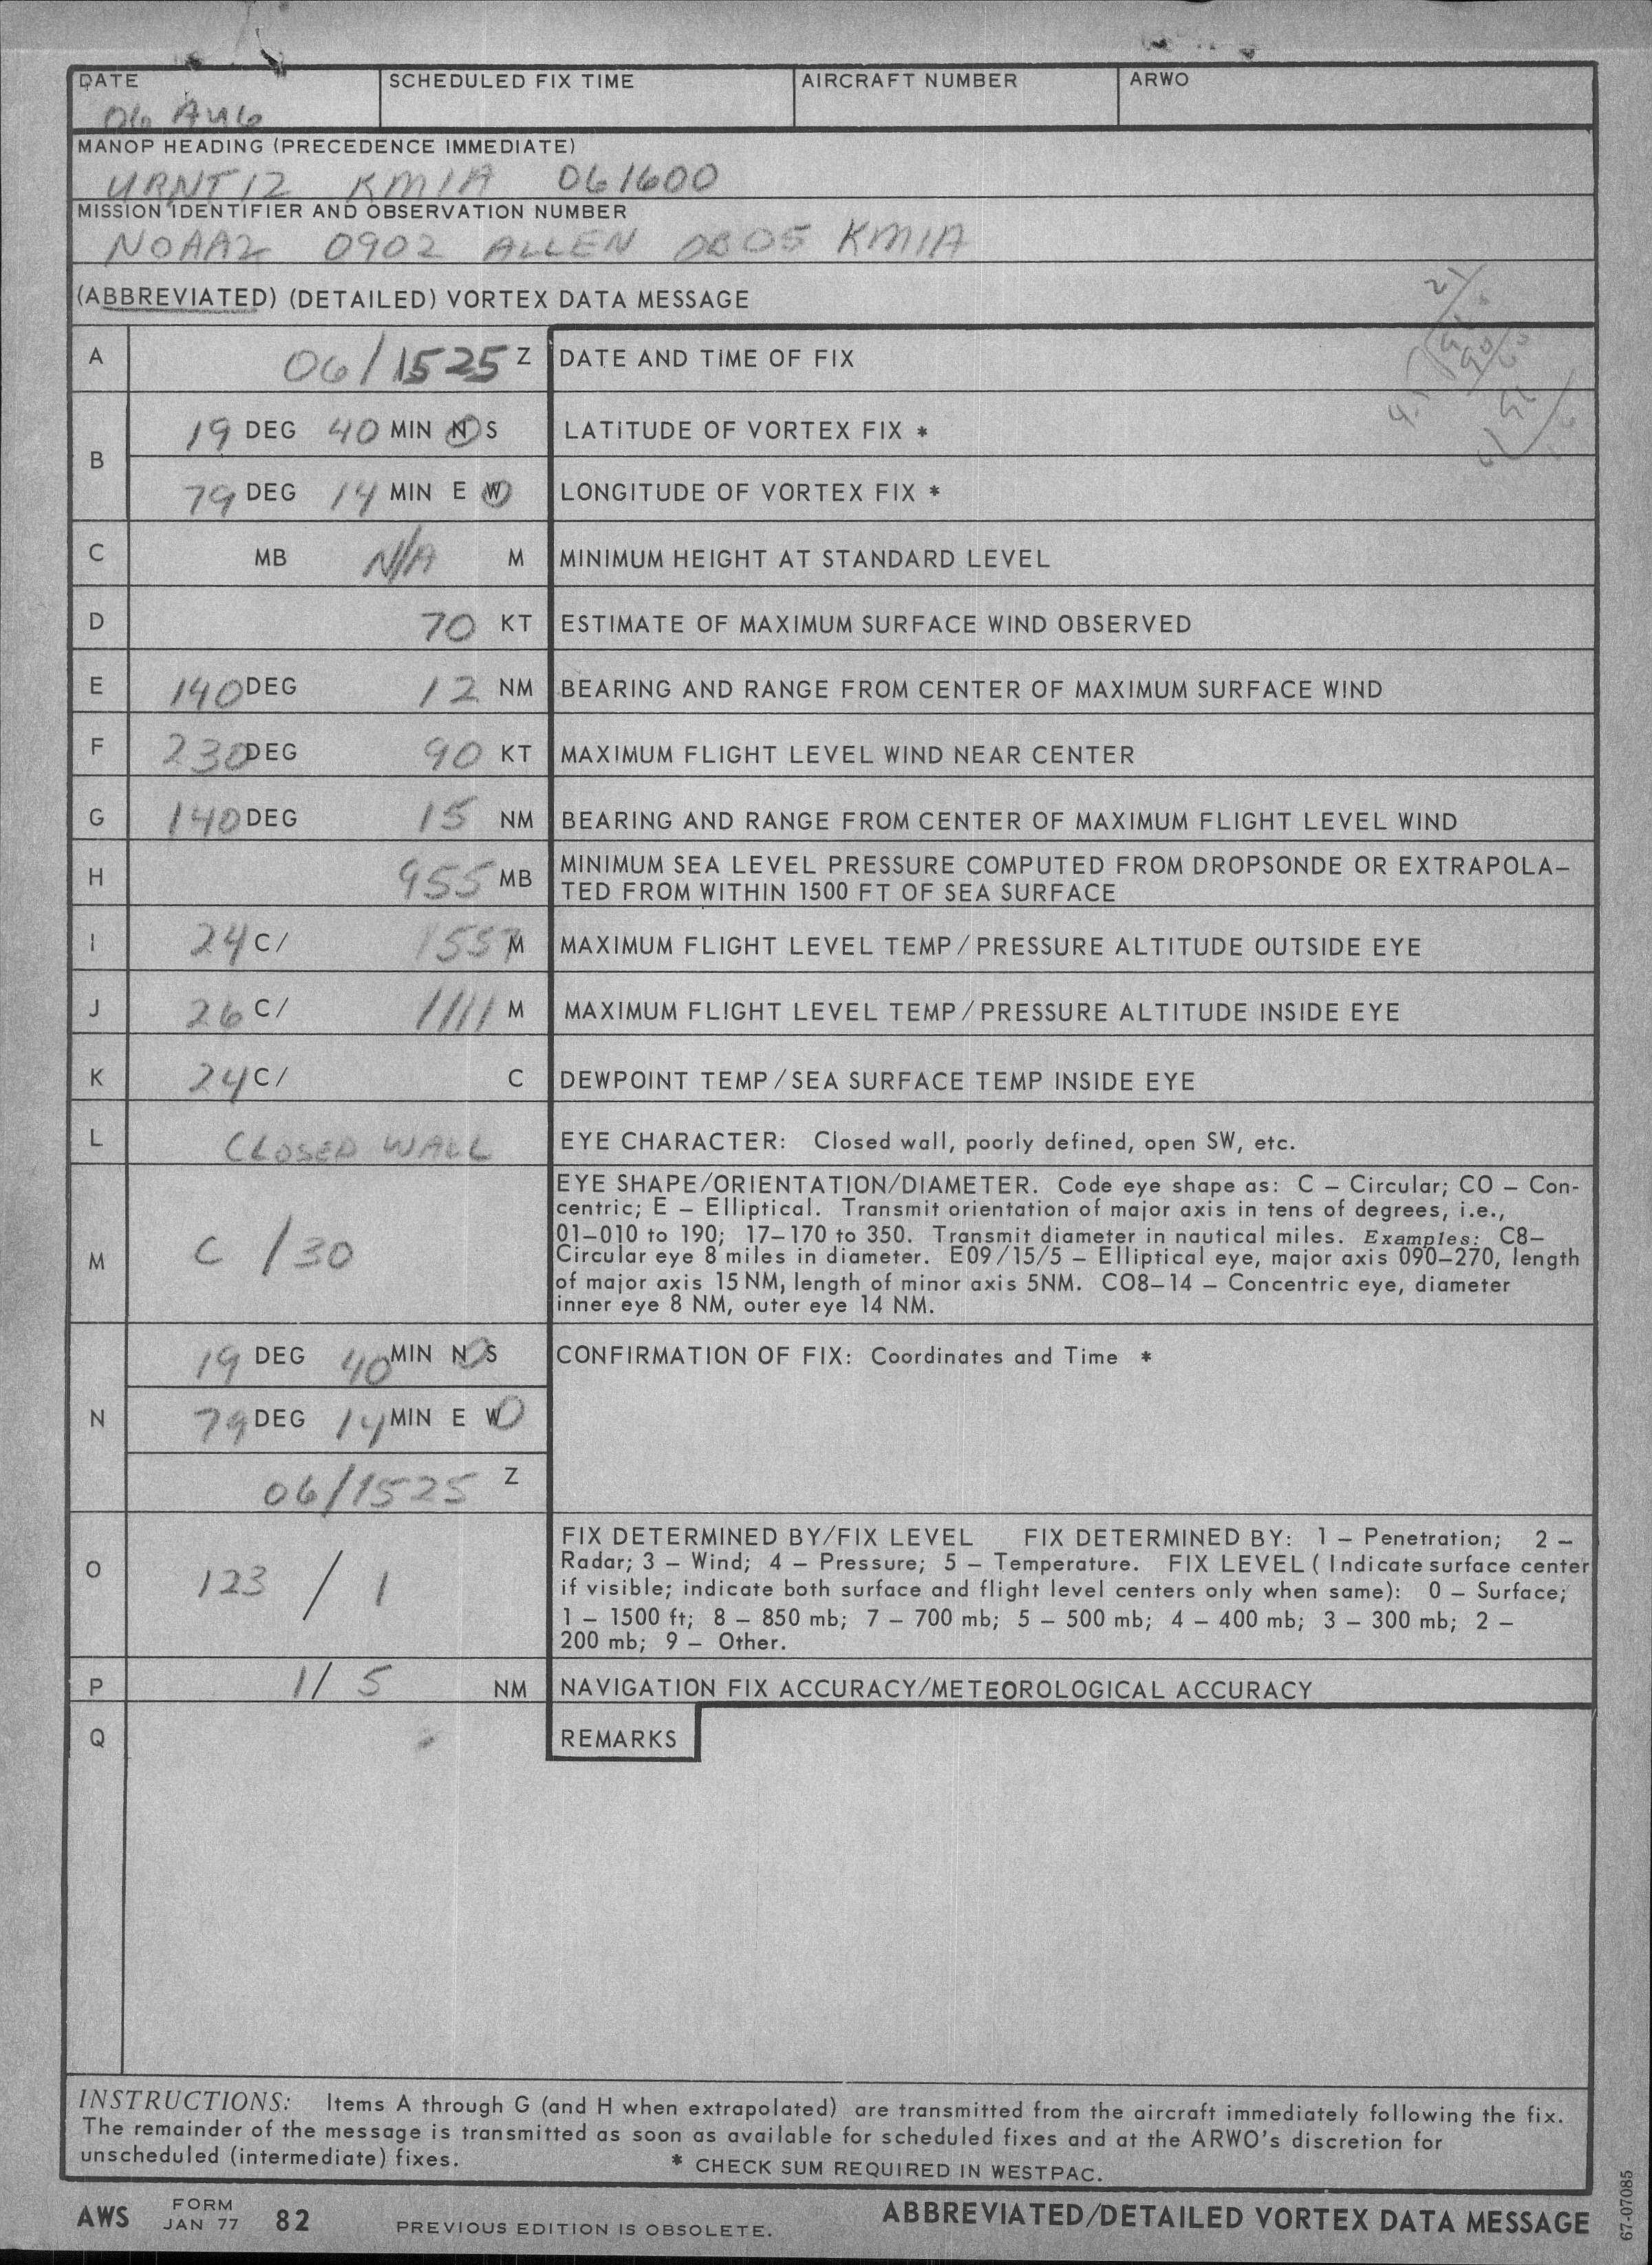 DATE SCHEDULED FIX TIME AIRCRAFT NUMBER ARWO
06 AUG
MANOP HEADING (PRECEDENCE IMMEDIATE)
URNT12 KMIA 061600
MISSION IDENTIFIER AND OBSERVATION NUMBER
NOAA2 0902 ALLEN OB05 KMIA
(ABBREVIATED) (DETAILED) VORTEX DATA MESSAGE
A 06/1525 Z DATE AND TIME OF FIX
B 19 DEG 40 MIN N S LATITUDE OF VORTEX FIX *
79 DEG 14 MIN E W LONGITUDE OF VORTEX FIX *
C MB N/A M MINIMUM HEIGHT AT STANDARD LEVEL
D 70 KT ESTIMATE OF MAXIMUM SURFACE WIND OBSERVED
E 140 DEG 12 NM BEARING AND RANGE FROM CENTER OF MAXIMUM SURFACE WIND
F 230 DEG 90 KT MAXIMUM FLIGHT LEVEL WIND NEAR CENTER
G 140 DEG 15 NM BEARING AND RANGE FROM CENTER OF MAXIMUM FLIGHT LEVEL WIND
H 955 MB MINIMUM SEA LEVEL PRESSURE COMPUTED FROM DROPSONDE OR EXTRAPOLA-
TED FROM WITHIN 1500 FT OF SEA SURFACE
I 24 C/ 1557 M MAXIMUM FLIGHT LEVEL TEMP/PRESSURE ALTITUDE OUTSIDE EYE
J 26 C/ 1111 M MAXIMUM FLIGHT LEVEL TEMP/PRESSURE ALTITUDE INSIDE EYE
K 24 C/ C DEWPOINT TEMP/SEA SURFACE TEMP INSIDE EYE
L CLOSED WALL EYE CHARACTER: Closed wall, poorly defined, open SW, etc.
M C /30 EYE SHAPE/ORIENTATION/DIAMETER. Code eye shape as: C – Circular; CO – Con-
centric; E – Elliptical. Transmit orientation of major axis in tens of degrees, i.e.,
01–010 to 190; 17–170 to 350. Transmit diameter in nautical miles. Examples: C8–
Circular eye 8 miles in diameter. E09/15/5 – Elliptical eye, major axis 090–270, length
of major axis 15 NM, length of minor axis 5NM. CO8–14 – Concentric eye, diameter
inner eye 8 NM, outer eye 14 NM.
N 19 DEG 40 MIN N S CONFIRMATION OF FIX: Coordinates and Time *
79 DEG 14 MIN E W
06/1525 Z
O 123 / 1 FIX DETERMINED BY/FIX LEVEL FIX DETERMINED BY: 1 – Penetration; 2 –
Radar; 3 – Wind; 4 – Pressure; 5 – Temperature. FIX LEVEL (Indicate surface center
if visible; indicate both surface and flight level centers only when same): 0 – Surface;
1 – 1500 ft; 8 – 850 mb; 7 – 700 mb; 5 – 500 mb; 4 – 400 mb; 3 – 300 mb; 2 –
200 mb; 9 – Other.
P 1/ 5 NM NAVIGATION FIX ACCURACY/METEOROLOGICAL ACCURACY
Q REMARKS
INSTRUCTIONS: Items A through G (and H when extrapolated) are transmitted from the aircraft immediately following the fix.
The remainder of the message is transmitted as soon as available for scheduled fixes and at the ARWO's discretion for
unscheduled (intermediate) fixes. * CHECK SUM REQUIRED IN WESTPAC.
AWS FORM JAN 77 82 PREVIOUS EDITION IS OBSOLETE. ABBREVIATED/DETAILED VORTEX DATA MESSAGE
67-07085